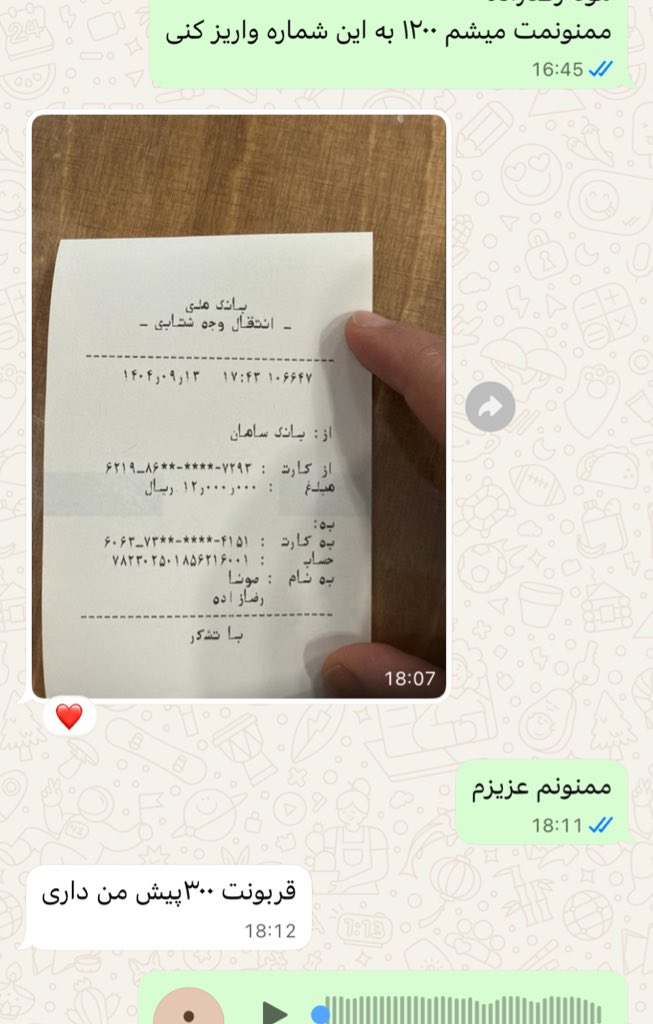 ممنونمت میشم ۱۲۰۰ به این شماره واریز کنی
16:45
بانک ملی
- انتقال وجه شتابی -
۱۴۰۴٫۰۹٫۱۳ ۱۷:۴۳ ۱۰۶۶۴۷
از: بانک سامان
از کارت : ۶۲۱۹-۸۶**-****-۷۲۹۳
مبلغ : ۱۲٫۰۰۰٫۰۰۰ ریال
به:
به کارت : ۶۰۶۳-۷۳**-****-۴۱۵۱
حساب : ۷۸۲۳۰۲۵۰۱۸۵۶۲۱۶۰۰۱
به نام : مونا
رضازاده
با تشکر
18:07
ممنونم عزیزم
18:11
قربونت ۳۰۰پیش من داری
18:12